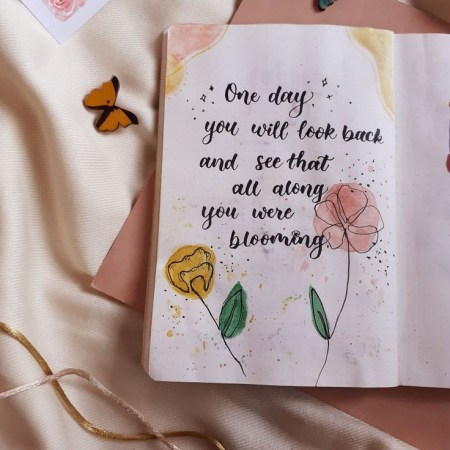 One day
you will look back
and see that
all along
you were
blooming